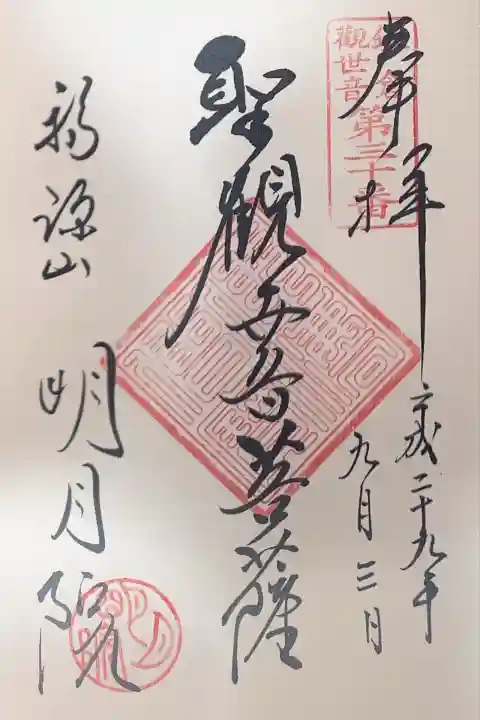 奉拝
鎌倉
觀世音
第三十番
平成二十九年
九月三日
聖觀世音菩薩
福源山
明月院